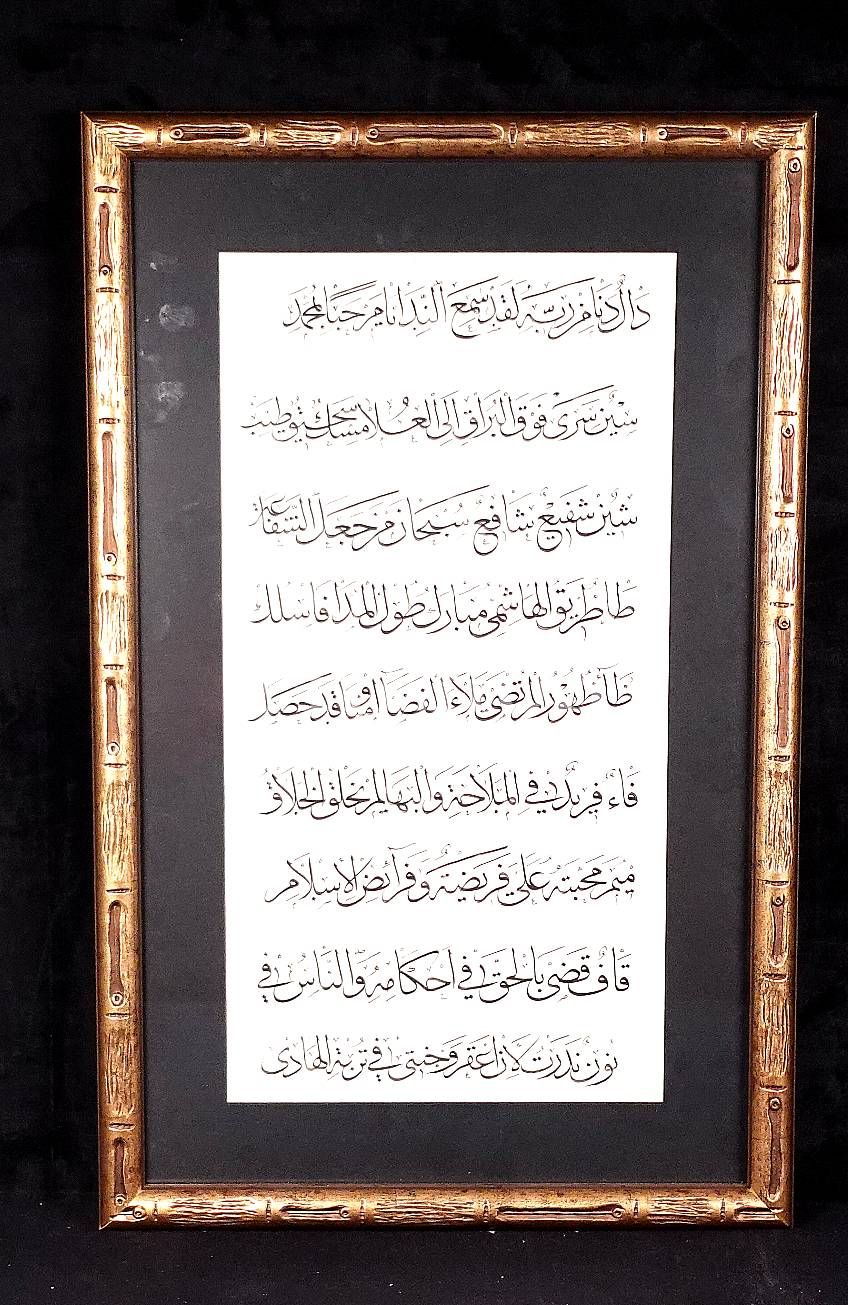 دَالٌ دَنَا مِنْ رَبِّهِ لَقَدْ سَمِعَ النِّدَا نَا مَرْحَبًا لِمُحَمَّدِ
سِيْنٌ سَرَى فَوْقَ الْبُرَاقِ اِلَى الْعُلَا مسك سحيق طيب
شِيْنٌ شَفِيْعٌ شَافِعٌ سُبْحَانَ مَنْ جَعَلَ الشَّفَاعَةِ
طَا طَرِيْقُ الْهَاشِمِيْ مُبَارَكٌ طُوْلَ الْمَدَا فَاسْلُكْ
ظَآ ظُهُوْرُ الْمُرْتَضَى مَلَاءَ الْفَضَآ قَدْ حَصَلَ
فَاءٌ فَرِيْدٌ فِى الْمَلَاحَةِ وَالْبَهَا لَمْ يَخْلُقِ الْخَلَّاقُ
مِيْمٌ مَحَبَّتُهُ عَلَيَّ فَرِيْضَةٌ وَفَرَآئِضُ الْاِسْلَامِ
قَافٌ قَضَى بَالْحَقِّ فِى اَحْكَامِهِ وَالنَّاسُ فِى
نُوْنٌ نَذَرْتُ لَاَنْ اُعَفِّرَ وَجْنَتِى فِى تُرْبَةِ الْهَادِى